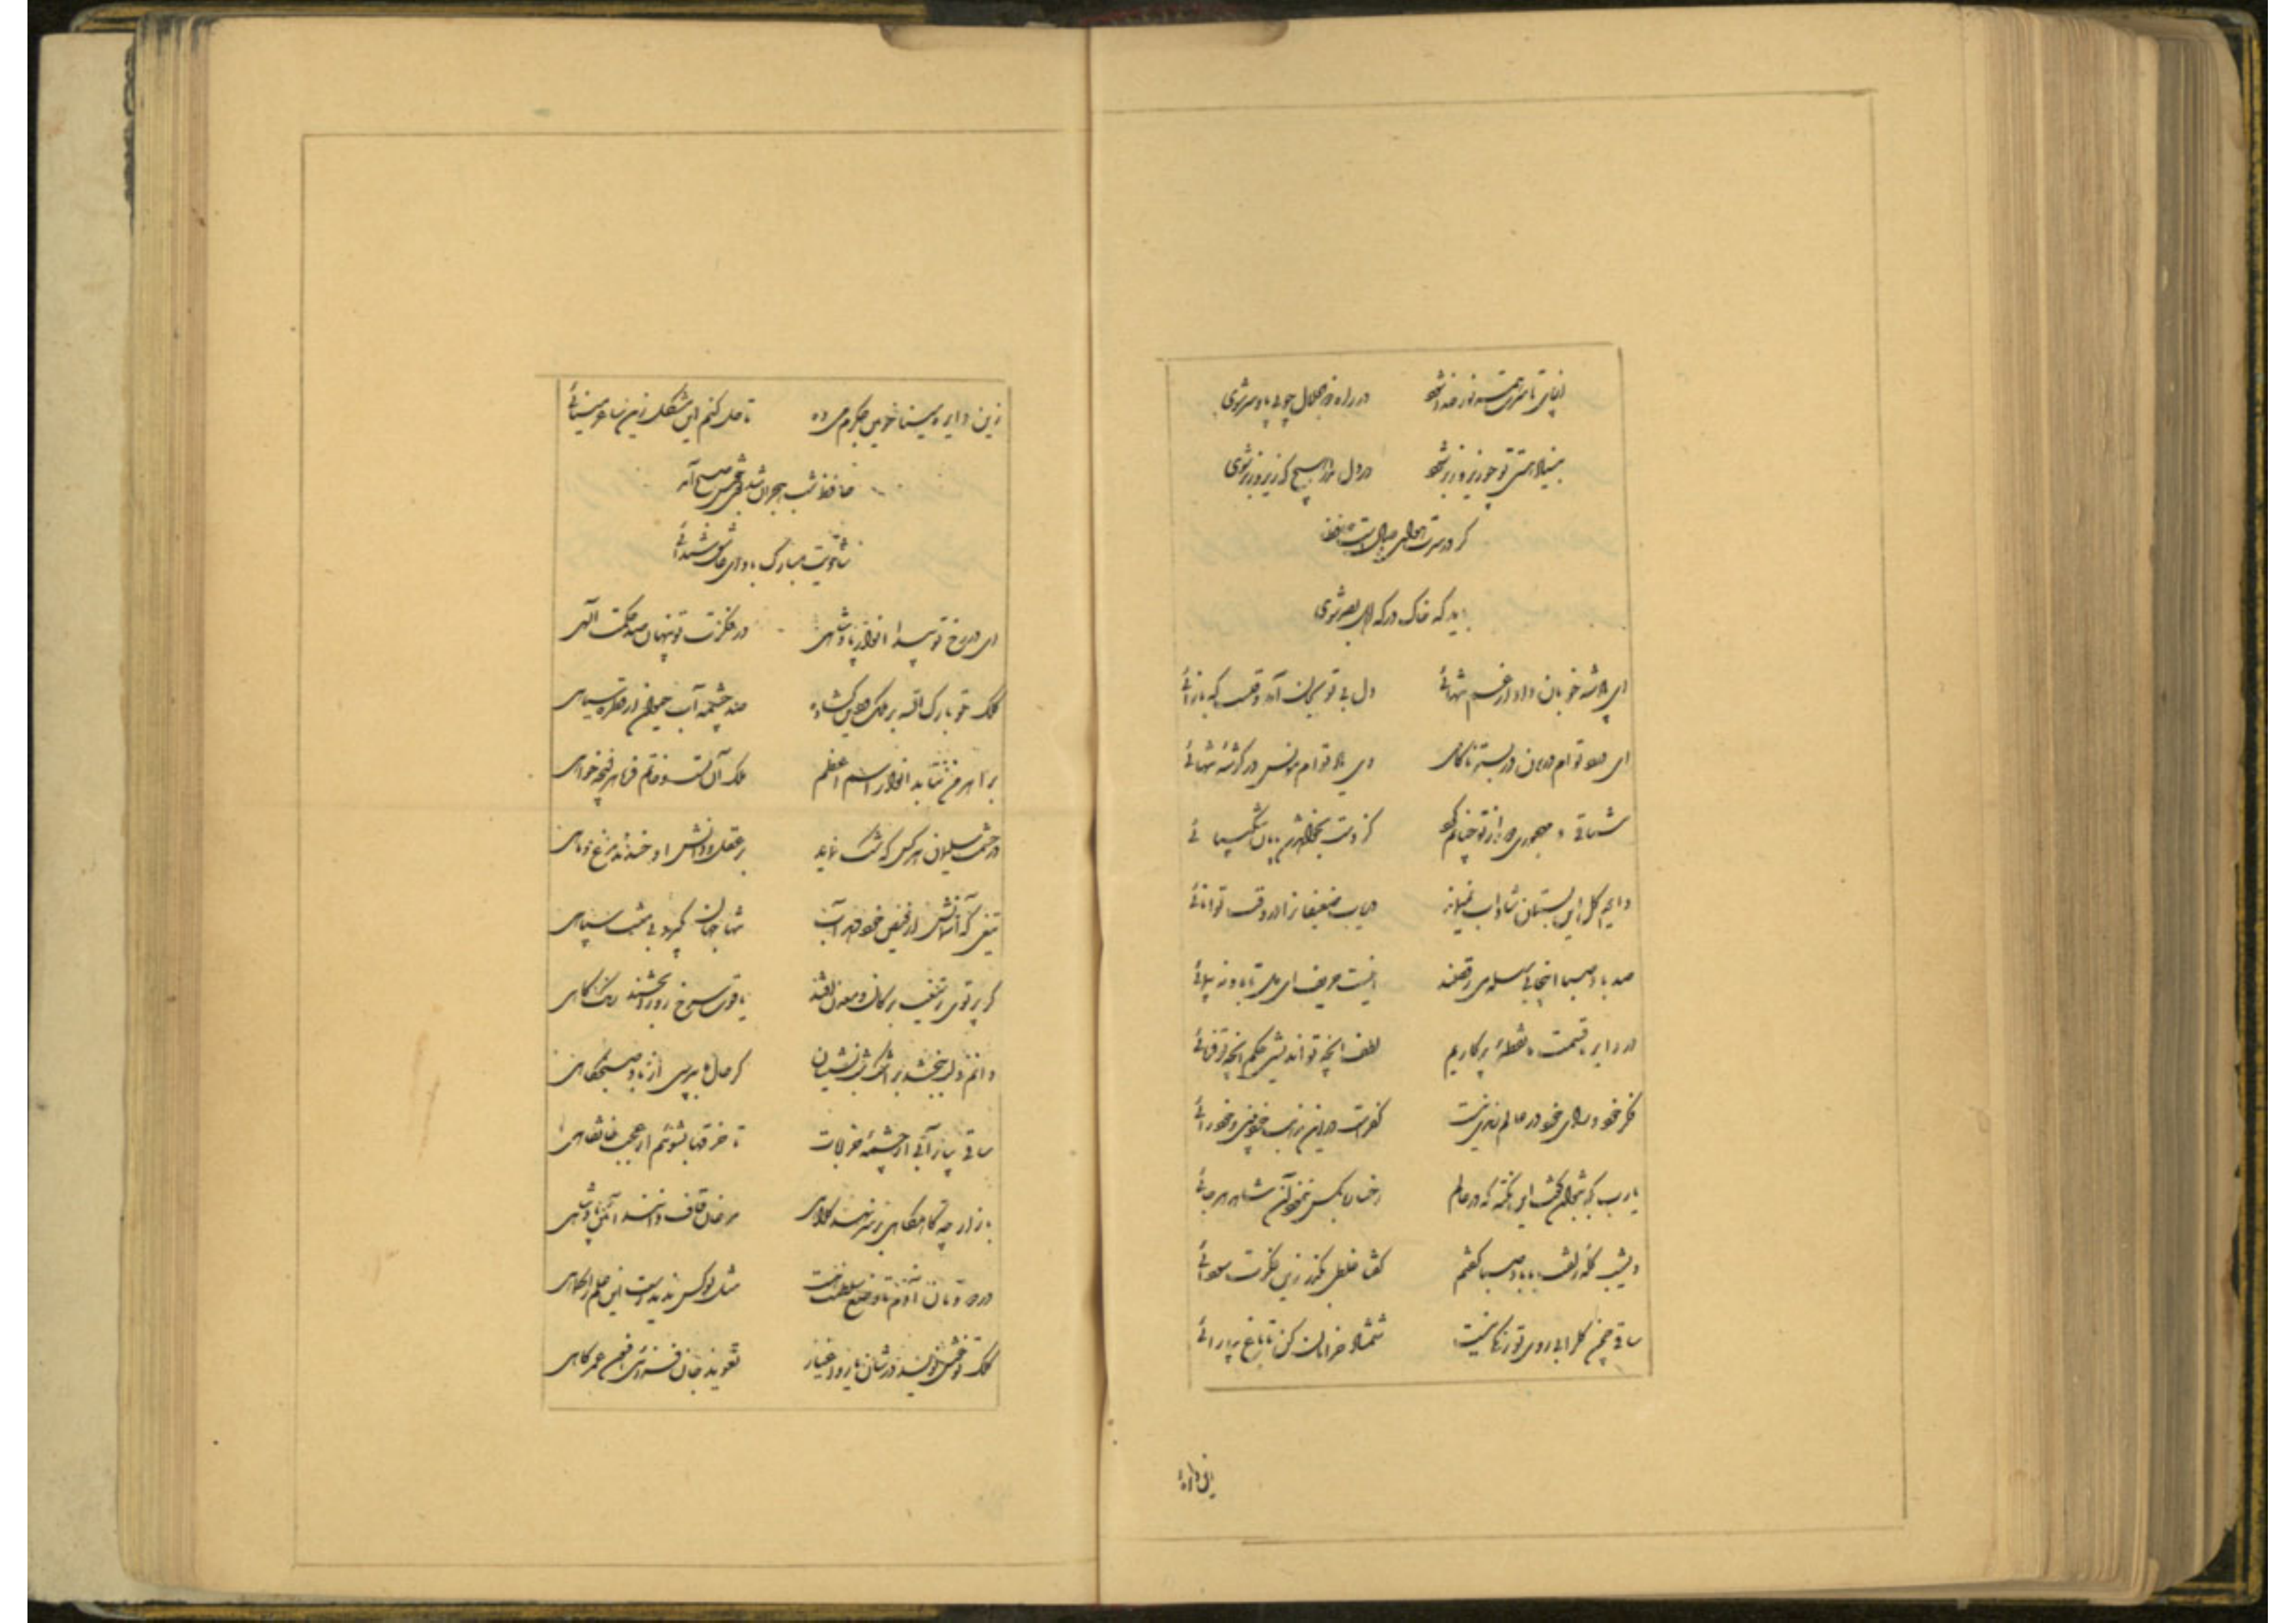 از پای تا سرت همه نور خدا شود در راه ذوالجلال چو بی پا و سر شوی
بنیاد هستی تو چو زیر و زبر شود در دل مدار هیچ که زیر و زبر شوی
گر در سرت هوای وصالست حافظا
باید که خاک درگه اهل بصر شوی
ای پادشه خوبان داد از غم تنهائی دل بی تو بجان آمد وقتست که باز آئی
ای درد توام درمان در بستر ناکامی وی یاد توام مونس در گوشهٔ تنهائی
مشتاقی و مهجوری دور از تو چنانم کرد کز دست بخواهد شد پایان شکیبائی
دایم گل این بستان شاداب نمیماند دریاب ضعیفانرا در وقت توانائی
صد باد صبا اینجا بی سلسله میرقصند اینست حریف ای دل تا باد نه پیمائی
در دایره قسمت ما نقطهٔ پرکاریم لطف آنچه تو اندیشی حکم آنچه تو فرمائی
فکر خود و رای خود در عالم رندی نیست کفرست درین مذهب خودبینی و خودرائی
یارب بکه بتوان گفت این نکته که در عالم رخساره بکس ننمود آن شاهد هرجائی
دیشب گله زلفت با باد صبا گفتم گفتا غلطی بگذر زین فکرت سودائی
ساقی چمن گل را بی روی تو رنگی نیست شمشاد خرامان کن تا باغ بیارائی
زین دایره
زین دایره مینا خونین جگرم می ده تا حل کنم این مشکل زین ساغر مینائی
حافظ شب هجران شد بوی خوش صبح آمد
شادیت مبارک باد ای عاشق شیدائی
ای در رخ تو پیدا انوار پادشاهی در فکرت تو پنهان صد حکمت الهی
کلک تو بارک الله بر ملک و دین گشاده صد چشمه آب حیوان از قطره سیاهی
بر اهرمن نتابد انوار اسم اعظم ملک آن تست و خاتم فرمای هر چه خواهی
در حشمت سلیمان هر کس که شک نماید بر عقل و دانش او خندند مرغ و ماهی
تیغی که آسمانش از فیض خود دهد آب تنها جهان بگیرد بی منت سپاهی
گر پرتوی ز تیغت بر کان و معدن افتد یاقوت سرخ رو را بخشند رنگ کاهی
دانم دلت ببخشد بر اشک شب نشینان گر حال ما بپرسی از باد صبحگاهی
ساقی بیار آبی از چشمهٔ خرابات تا خرقها بشوئیم از عجب خانقاهی
باز ارچه گاهگاهی بر سر نهد کلاهی مرغان قاف دانند آئین پادشاهی
در دودمان آدم تا وضع سلطنت هست مثل تو کس ندیدست این علم را کماهی
کلک تو خوش نویسد در شان یار و اغیار تعویذ جان فزائی افسون عمر کاهی